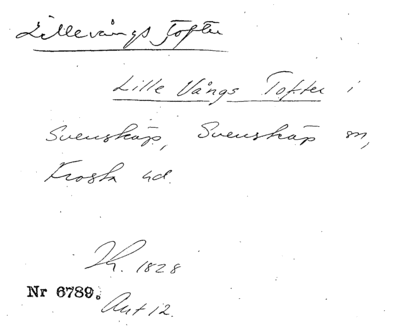 Lillevångs Tofter
Lille Vångs Tofter i
Svenskåp, Svenskåp sn,
Frosta hd.
1828
Nr 6789.
Akt 12.